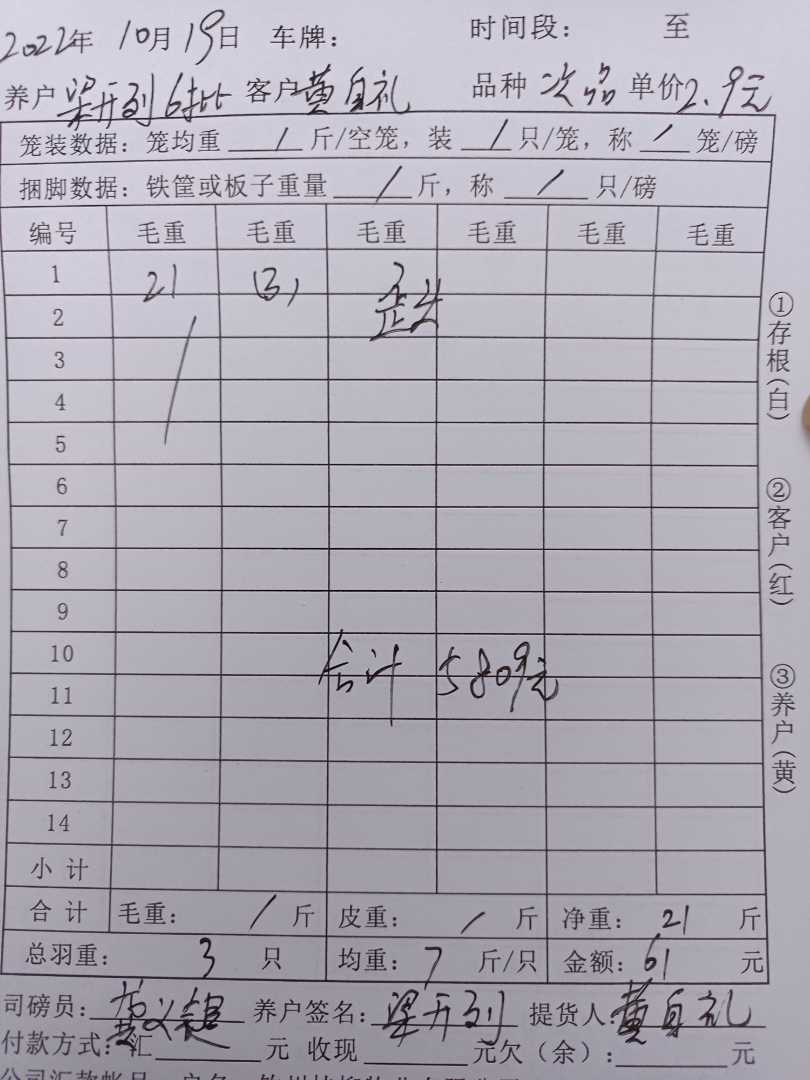 2022年 10月19日 车牌： 时间段： 至
养户 梁开列6批 客户 黄自礼 品种 次品 单价2.9元
笼装数据：笼均重 / 斤/空笼，装 / 只/笼，称 / 笼/磅
捆脚数据：铁筐或板子重量 / 斤，称 / 只/磅
编号 毛重 毛重 毛重 毛重 毛重 毛重
1 21 (3)
2
3
4
5
6
7
8
9
10
合计 5809元
11
12
13
14
小计
合计 毛重： / 斤 皮重： / 斤 净重： 21 斤
总羽重： 3 只 均重： 7 斤/只 金额： 61 元
司磅员： 养户签名： 梁开列 提货人： 黄自礼
付款方式：汇 元 收现 元欠（余）： 元
①存根（白）
②客户（红）
③养户（黄）